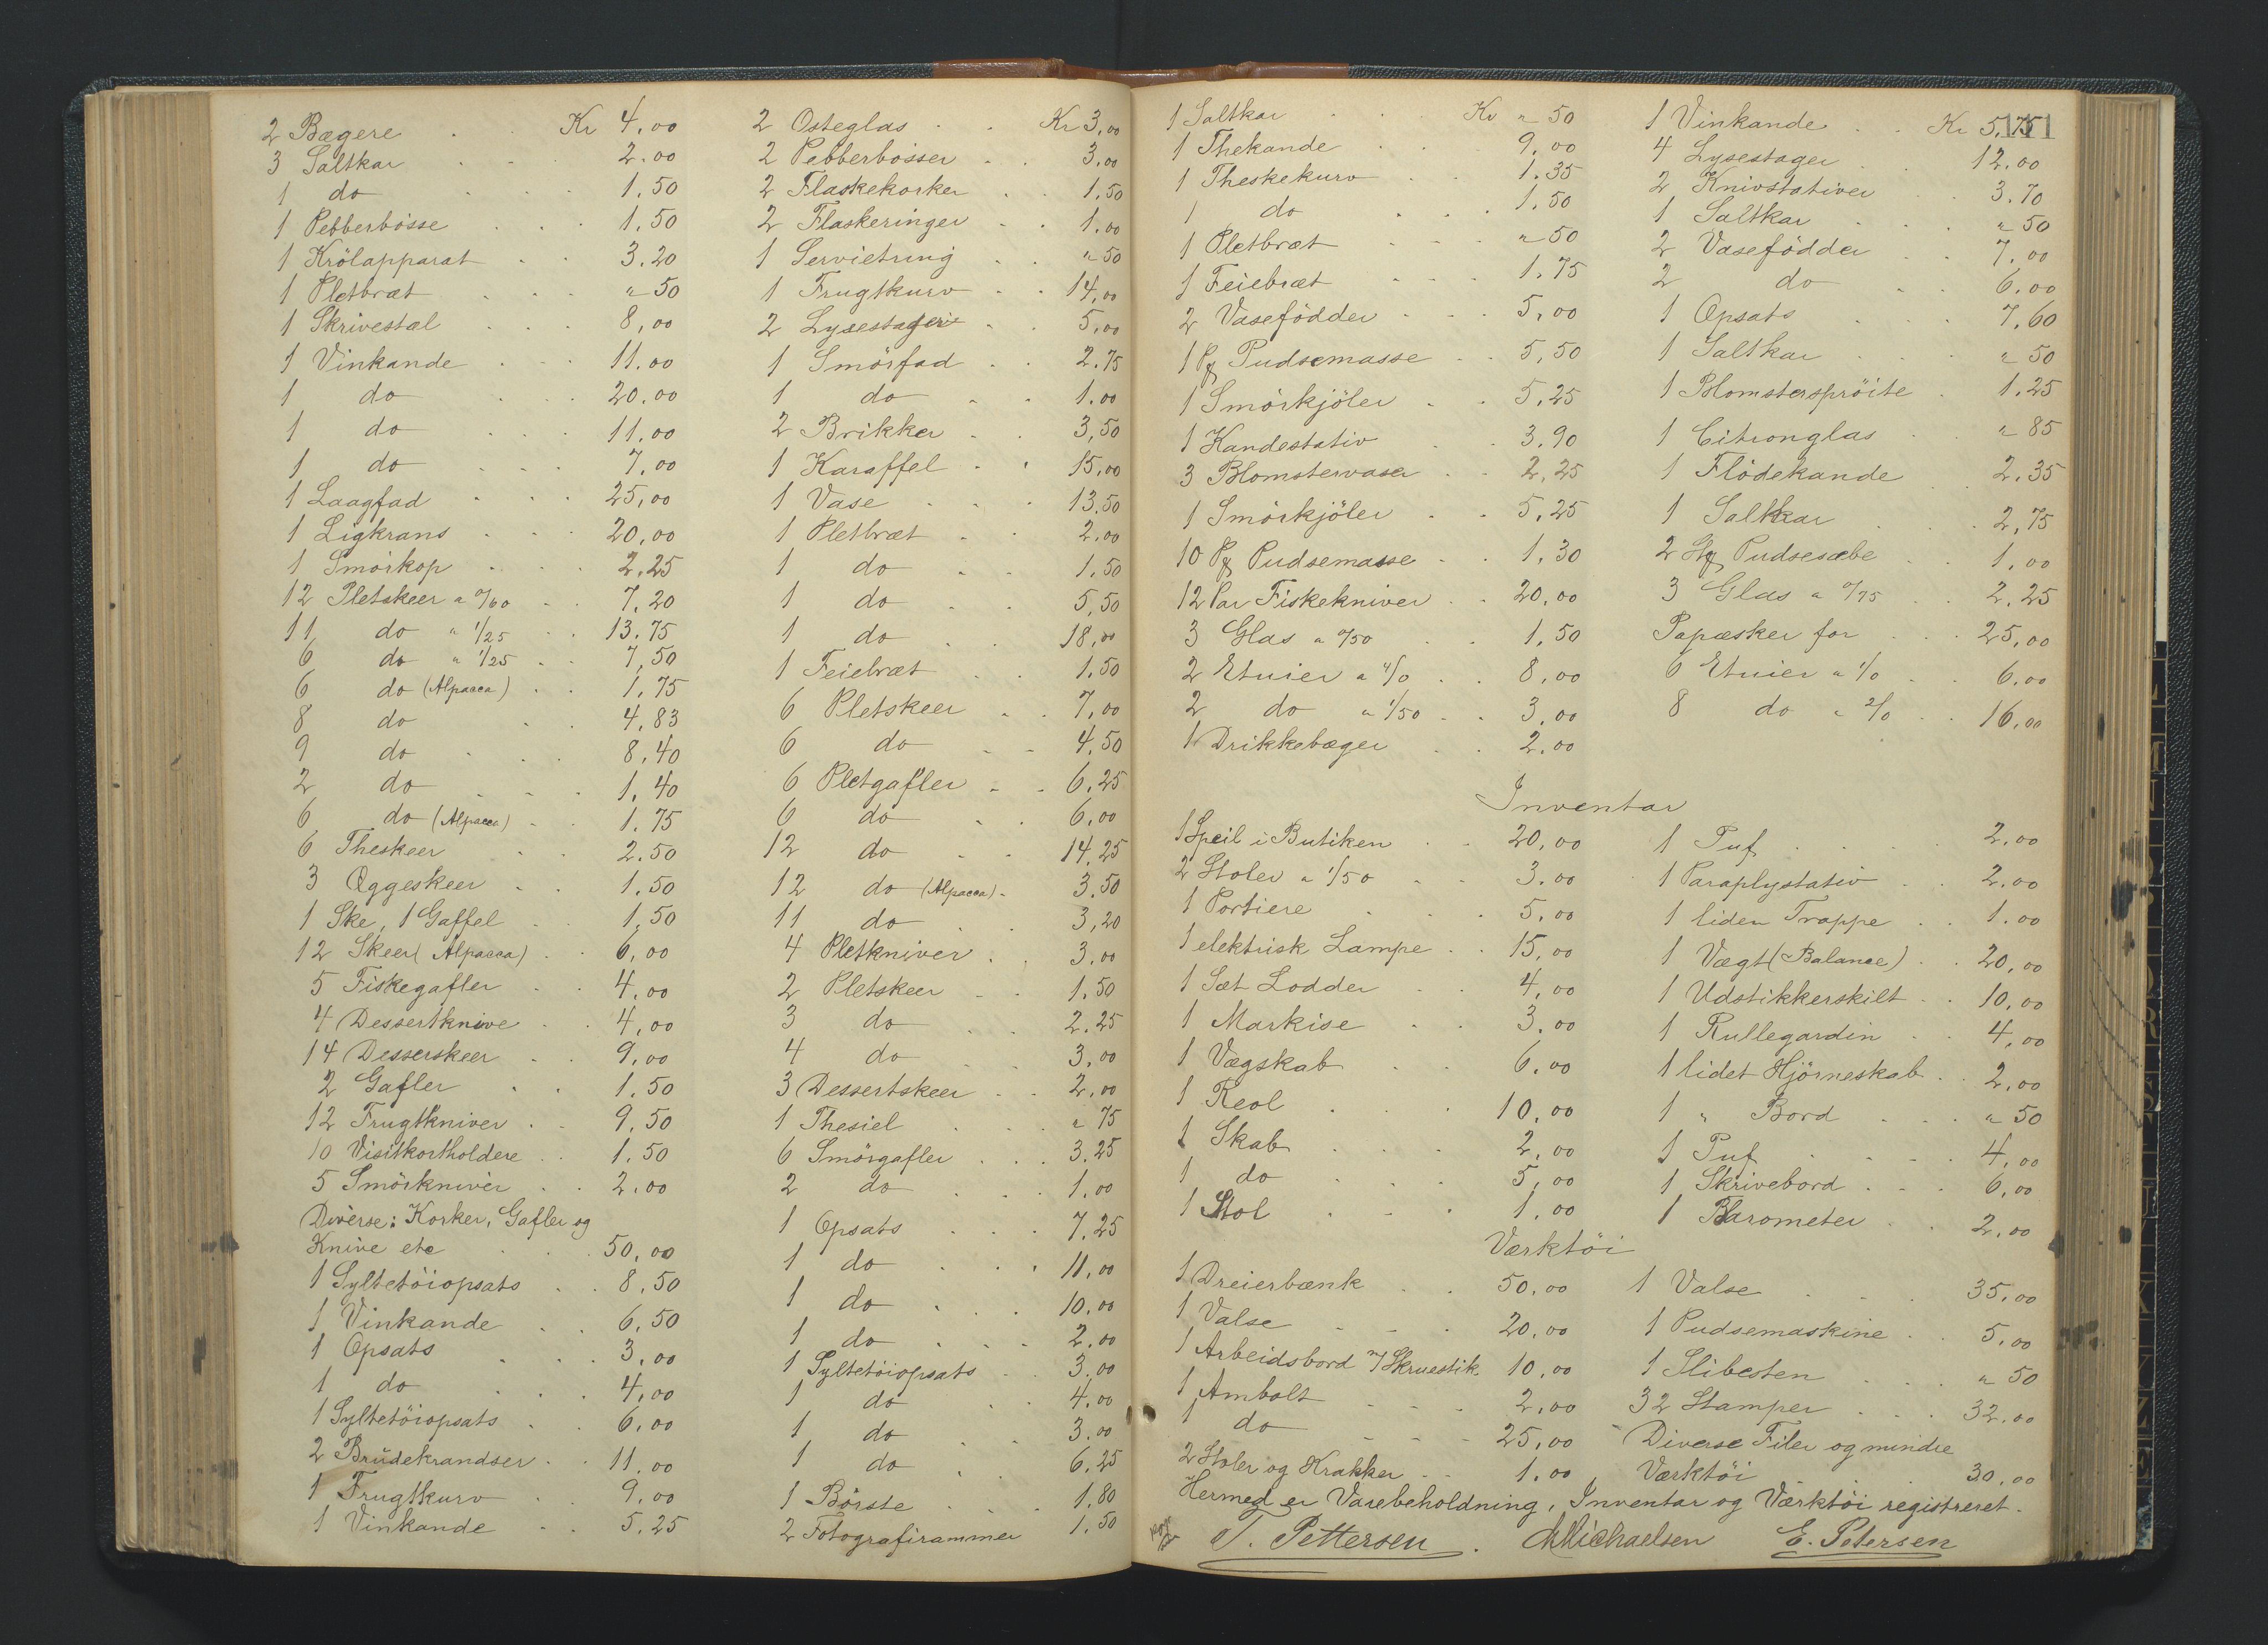 2 Bægere . . Kr 4,00
3 Saltkar . . 2.00
1 do . . 1.50
1 Pebberbösse . . 1.50
1 Krölapparat . . 3.20
1 Pletbræt . . " 50
1 Skrivestæl . . 8,00
1 Vinkande . . 11.00
1 do . . 20.00
1 do . . 11.00
1 do . . 7.00
1 Laagfad . . 25,00
1 Ligkrans . . 20,00
1 Smörkop . . 2.25
12 Pletskeer a "/60 . . 7,20
11 do " 1/25 . . 13.75
6 do " 1/25 . . 7,50
6 do (Alpacca) . . 1.75
8 do . . 4,83
9 do . . 8,40
2 do . . 1,40
6 do (Alpacca) . . 1.75
6 Theskeer . . 2.50
3 Æggeskeer . . 1.50
1 Ske, 1 Gaffel . . 1,50
12 Skeer (Alpacca) . . 6,00
5 Fiskegafler . . 4,00
4 Dessertknive . . 4,00
14 Desserskeer . . 9.00
2 Gafler . . 1.50
12 Frugtkniver . . 9,50
10 Visitkortholdere . . 1.50
5 Smörkniver . . 2.00
Diverse: Korker, Gafler og
Knive etc . . 50,00
1 Syltetöiopsats . . 8,50
1 Vinkande . . 6,50
1 Opsats . . 3,00
1 do . . 4,00
1 Syltetöiopsats . . 6.00
2 Brudekrandser . . 11.00
1 Frugtkurv . . 9.00
1 Vinkande . . 5.25
2 Osteglas . . Kr 3,00
2 Pebberbösser . . 3.00
2 Flaskekorker . . 1.50
2 Flaskeringer . . 1.00
1 Servietring . . " 50
1 Frugtkurv . . 14,00
2 Lysestager . . 5,00
1 Smörfad . . 2.75
1 do . . 1.00
2 Brikker . . 3,50
1 Karaffel . . 15,00
1 Vase . . 13.50
1 Pletbræt . . 2.00
1 do . . 1.50
1 do . . 5,50
1 do . . 18,00
1 Feiebræt . . 1.50
6 Pletskeer . . 7,00
6 do . . 4.50
6 Pletgafler . . 6,25
6 do . . 6,00
12 do . . 14,25
12 do (Alpacca) . 3.50
11 do . . 3,20
4 Pletkniver . . 3,00
2 Pletskeer . . 1.50
3 do . . 2.25
4 do . . 3,00
3 Dessertskeer . . 2,00
1 Thesiel . . " 75
6 Smörgafler . . 3.25
2 do . . 1.00
1 Opsats . . 7.25
1 do . . 11,00
1 do . . 10.00
1 do . . 2.00
1 Syltetöiopsats . . 3.00
1 do . . 4.00
1 do . . 3.00
1 do . . 6.25
1 Börste . . 1,80
2 Fotografirammer 1.50
171
1 Saltkar . . Kr " 50
1 Thekande . . 9,00
1 Theskekurv . . 1.35
1 do . . 1.50
1 Pletbræt . . " 50
1 Feiebræt . . 1.75
2 Vasefödder . . 5,00
1 Pk Pudsemasse . . 5,50
1 Smörkjöler . . 5.25
1 Kandestativ . . 3.90
3 Blomstervaser . . 2,25
1 Smörkjöler . . 5.25
10 Pk Pudsemasse . . 1.30
12 Par Fiskekniver . . 20,00
3 Glas a "/50 . . 1.50
2 Etuier a 4/0 . . 8,00
2 do a 1/50 . . 3.00
1 Drikkebæger . . 2.00
1 Vinkande . . Kr 5,75
4 Lysestager . 12.00
2 Knivstativer . . 3.70
1 Saltkar . . " 50
2 Vasefödder . . 7.00
2 do . . 6.00
1 Opsats . . 7,60
1 Saltkar . . " 50
1 Blomsterspröite . 1.25
1 Citronglas . . " 85
1 Flödekande . 2.35
1 Saltkar . . 2,75
2 Stk Pudsesæbe . . 1,00
3 Glas a "/75 . . 2,25
Papæsker for . . 25,00
6 Etuier a 1/0 . . 6.00
8 do a 2/0 . . 16,00
Inventar
1 Speil i Butiken . . 20,00
2 Stoler a 1/50 . . 3.00
1 Portiere . . 5,00
1 elektrisk Lampe . . 15,00
1 Sæt Lodder . . 4,00
1 Markise . . 3,00
1 Vægskab . . 6.00
1 Reol . . 10,00
1 Skab . . 2,00
1 do . . 5,00
1 Stol . . 1,00
1 Puf . . 2,00
1 Paraplystativ . . 2.00
1 liden Trappe . . 1.00
1 Vægt (Balance) . . 20,00
1 Udstikkerskilt . . 10,00
1 Rullegardin . . 4,00
1 lidet Hjörneskab . 2,00
1 " Bord . . " 50
1 Puf . . 4,00
1 Skrivebord . . 6,00
1 Barometer . . 2,00
Værktöi
1 Dreierbænk . . 50,00
1 Valse . . 20,00
1 Arbeidsbord m/Skruestik 10,00
1 Ambolt . . 2,00
1 do . . 25,00
2 Stoler og Krakker . . 1.00
1 Valse . . 35,00
1 Pudsemaskine . . 5,00
1 Slibesten . . " 50
32 Stamper . . 32,00
Diverse Filer og mindre
Værktöi . . 30,00
Hermed er Varebeholdning, Inventar og Værktöi registreret.
T. Pettersen. M Michaelsen E. Petersen